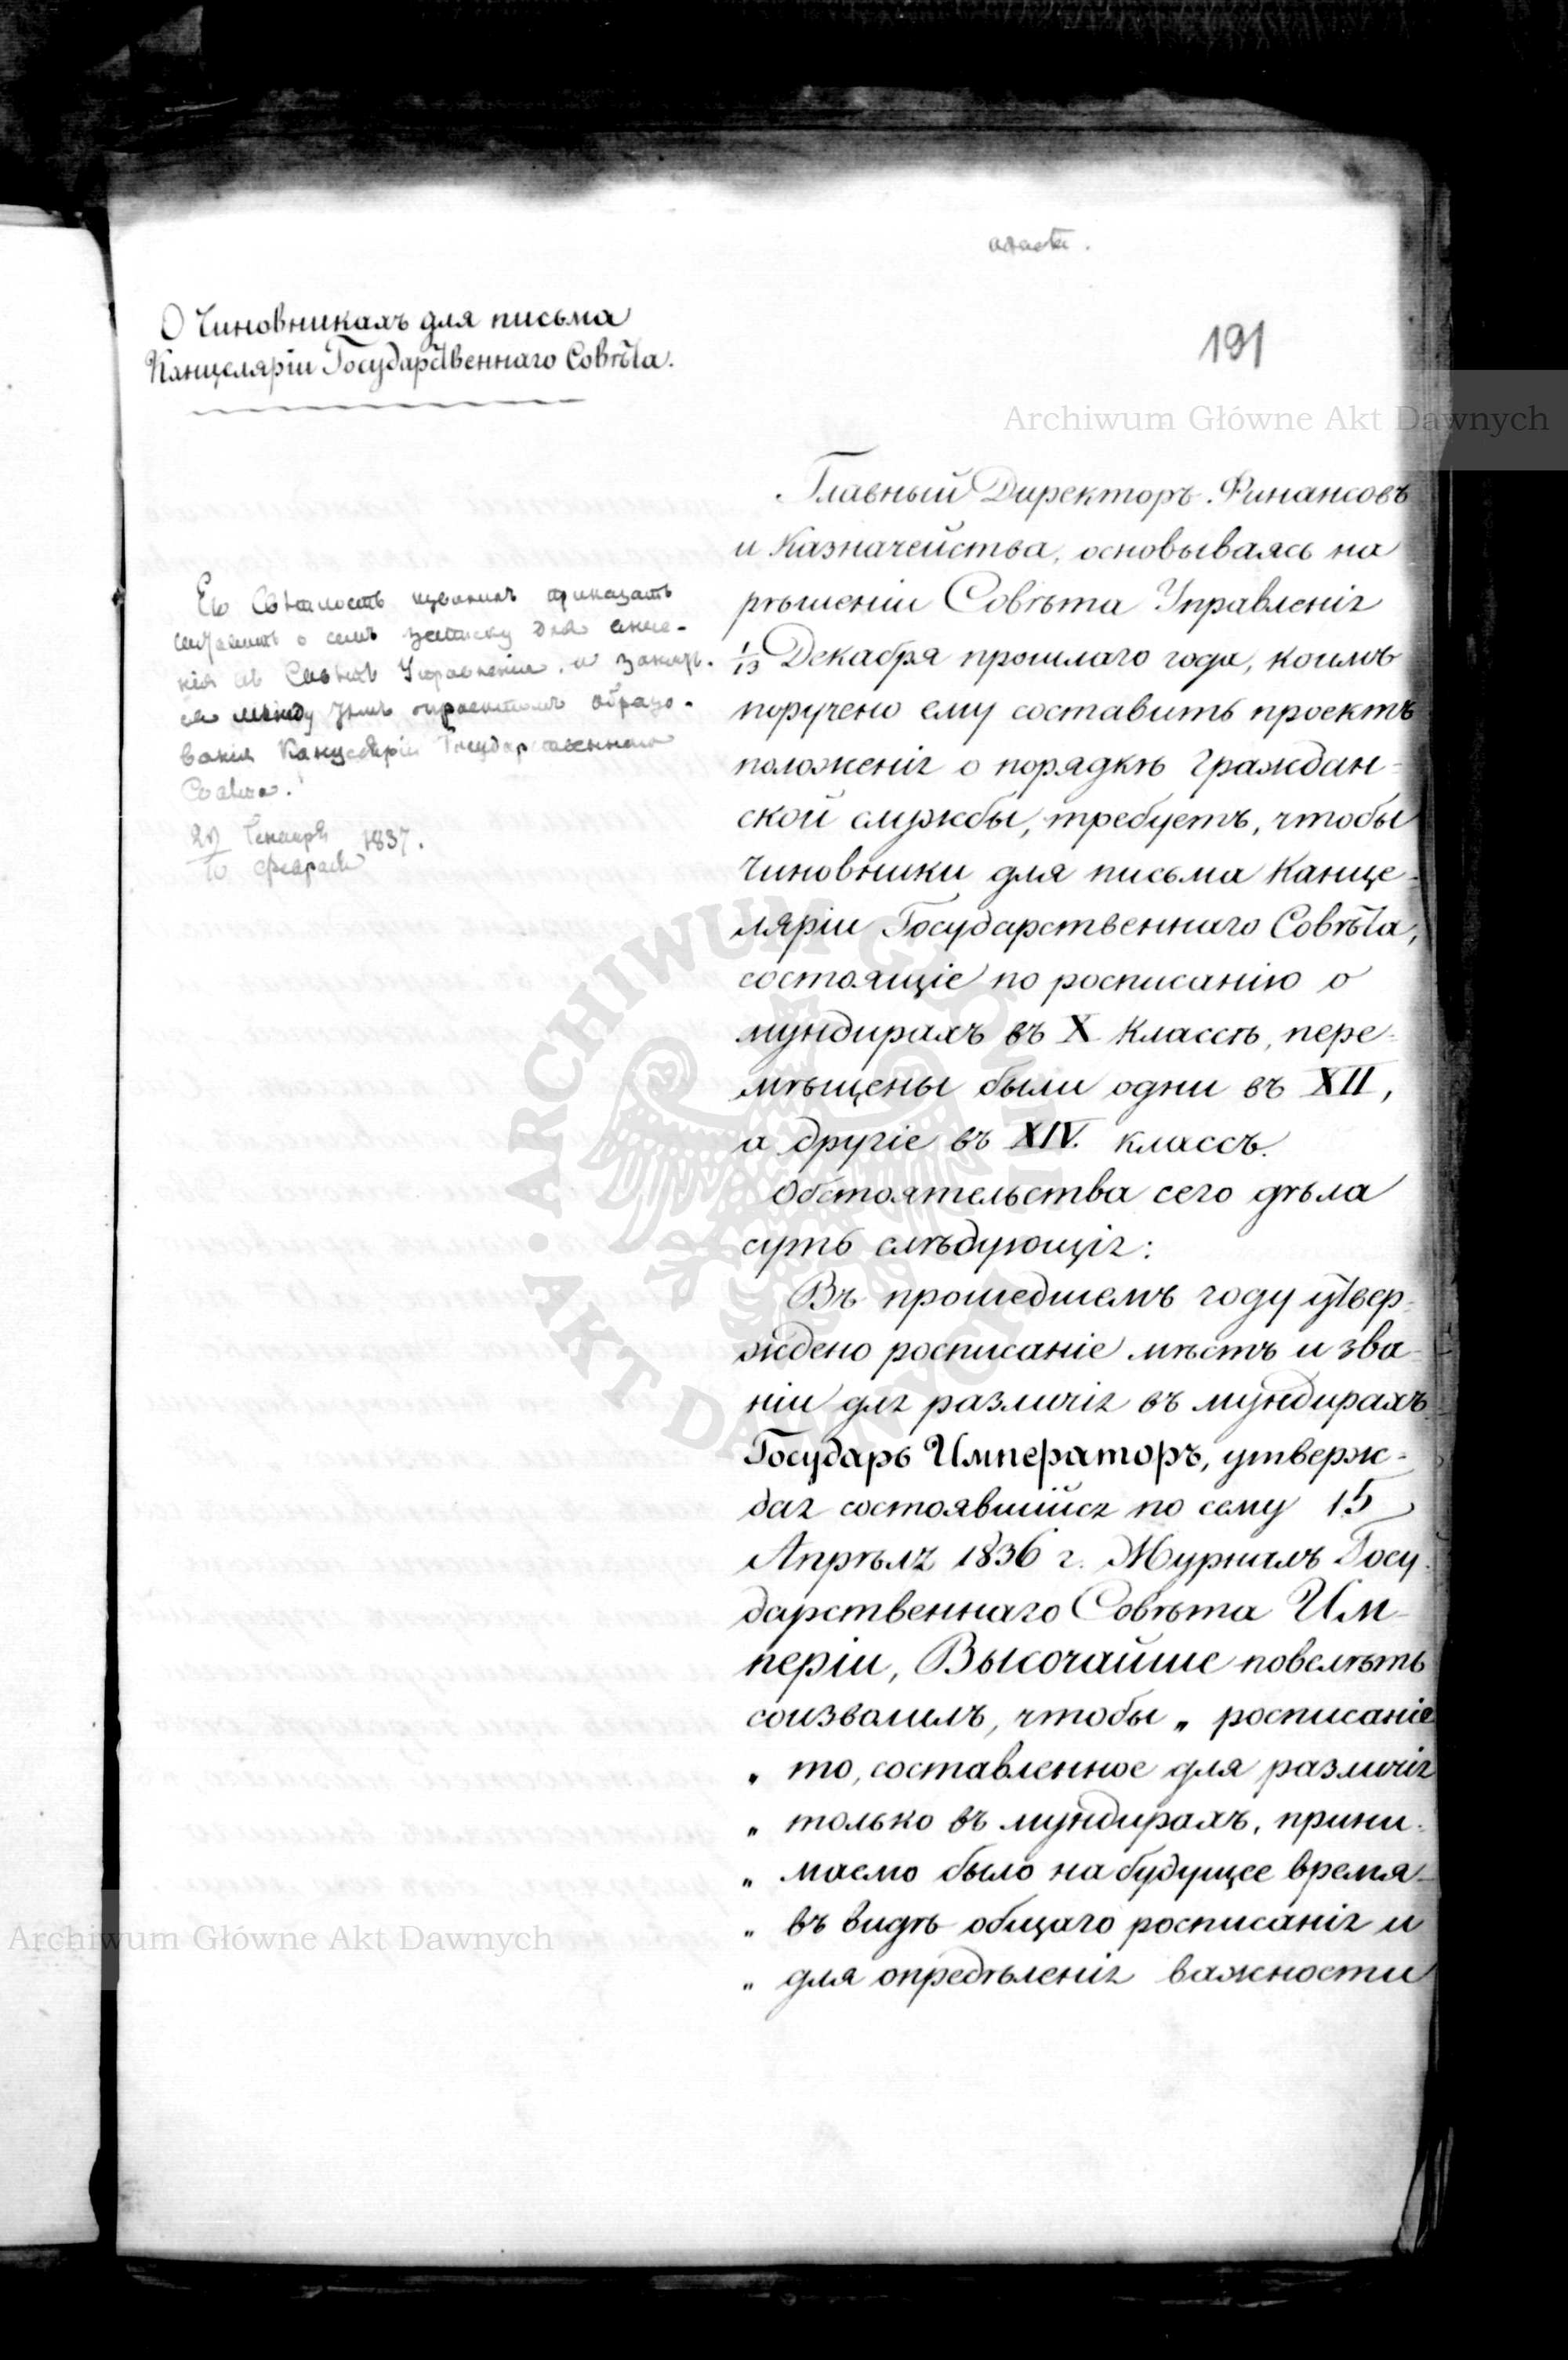 191
О Чиновникахъ для письма
Канцеляріи Государственнаго Совѣта.
Его Свѣтлость изволилъ приказать
составить о семъ записку для внесе-
нія въ Совѣтъ Управленія, и
между тѣмъ проектомъ образо-
ванія Канцеляріи Государственнаго
Совѣта.
29 Генваря 1837.
10 Февраля
Главный Директоръ Финансовъ
и Казначейства, основываясь на
рѣшеніи Совѣта Управленія
1/13 Декабря прошлаго года, коимъ
поручено ему составить проектъ
положенія о порядкѣ Граждан-
ской службы, требуетъ, чтобы
Чиновники для письма Канце-
ляріи Государственнаго Совѣта,
состоящіе по росписанію о
мундирахъ въ X классѣ, пере-
мѣщены были одни въ XII,
а другіе въ XIV. классъ.
Обстоятельства сего дѣла
суть слѣдующія:
Въ прошедшемъ году утвер-
ждено росписаніе мѣстъ и зва-
ніи для различія въ мундирахъ
Государь Императоръ, утверж-
дая состоявшійся по сему 15
Апрѣля 1836 г. Журналъ Госу-
дарственнаго Совѣта Им-
періи, Высочайше повелѣть
соизволилъ, чтобы „ росписаніе
„ то, составленное для различія
„ только въ мундирахъ, прини-
„ маемо было на будущее время
„ въ видѣ общаго росписанія и
„ для опредѣленія важности
Archiwum Główne Akt Dawnych
Archiwum Główne Akt Dawnych
ARCHIWUM GŁÓWNE AKT DAWNYCH